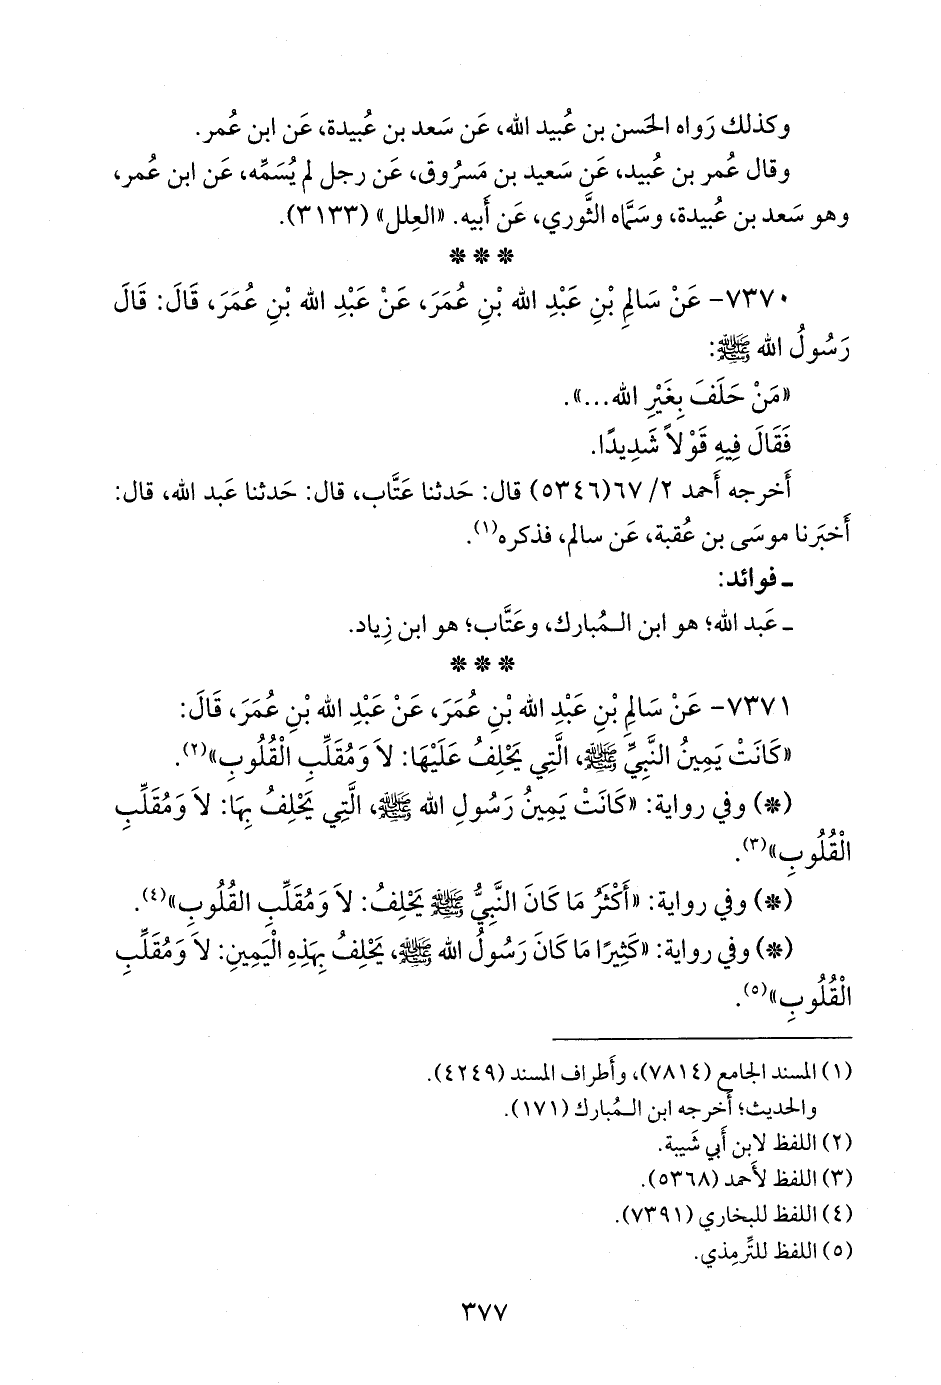 وكذلك رَواه الحَسن بن عُبيد الله، عَن سَعد بن عُبيدة، عَن ابن عُمر.
وقال عُمر بن عُبيد، عَن سَعيد بن مَسرُوق، عَن رجل لم يُسَمِّه، عَن ابن عُمر،
وهو سَعد بن عُبيدة، وسَمَّاه الثَّوري، عَن أَبيه. «العِلل» (٣١٣٣).
* * *
٧٣٧٠- عَنْ سَالِمِ بْنِ عَبْدِ الله بْنِ عُمَرَ، عَنْ عَبْدِ الله بْنِ عُمَرَ، قَالَ: قَالَ
رَسُولُ الله ﷺ:
«مَنْ حَلَفَ بِغَيْرِ الله...».
فَقَالَ فِيهِ قَوْلاً شَدِيدًا.
أَخرجه أَحمد ٢/ ٦٧(٥٣٤٦) قال: حَدثنا عَتَّاب، قال: حَدثنا عَبد الله، قال:
أَخبَرنا موسَى بن عُقبة، عَن سالم، فذكره(١).
ـ فوائد:
ـ عَبد الله؛ هو ابن الـمُبارك، وعَتَّاب؛ هو ابن زِياد.
* * *
٧٣٧١- عَنْ سَالِمِ بْنِ عَبْدِ الله بْنِ عُمَرَ، عَنْ عَبْدِ الله بْنِ عُمَرَ، قَالَ:
«كَانَتْ يَمِينُ النَّبِيِّ ﷺ، الَّتِي يَحْلِفُ عَلَيْهَا: لاَ وَمُقَلِّبِ الْقُلُوبِ»(٢).
(*) وفي رواية: «كَانَتْ يَمِينُ رَسُولِ الله ﷺ، الَّتِي يَحْلِفُ بِهَا: لاَ وَمُقَلِّبِ
الْقُلُوبِ»(٣).
(*) وفي رواية: «أَكْثَرُ مَا كَانَ النَّبِيُّ ﷺ يَحْلِفُ: لاَ وَمُقَلِّبِ القُلُوبِ»(٤).
(*) وفي رواية: «كَثِيرًا مَا كَانَ رَسُولُ الله ﷺ، يَحْلِفُ بِهَذِهِ الْيَمِينِ: لاَ وَمُقَلِّبِ
الْقُلُوبِ»(٥).
(١) المسند الجامع (٧٨١٤)، وأَطراف المسند (٤٢٤٩).
والحديث؛ أَخرجه ابن الـمُبارك (١٧١).
(٢) اللفظ لابن أَبي شَيبة.
(٣) اللفظ لأَحمد (٥٣٦٨).
(٤) اللفظ للبخاري (٧٣٩١).
(٥) اللفظ للتِّرمِذي.
٣٧٧